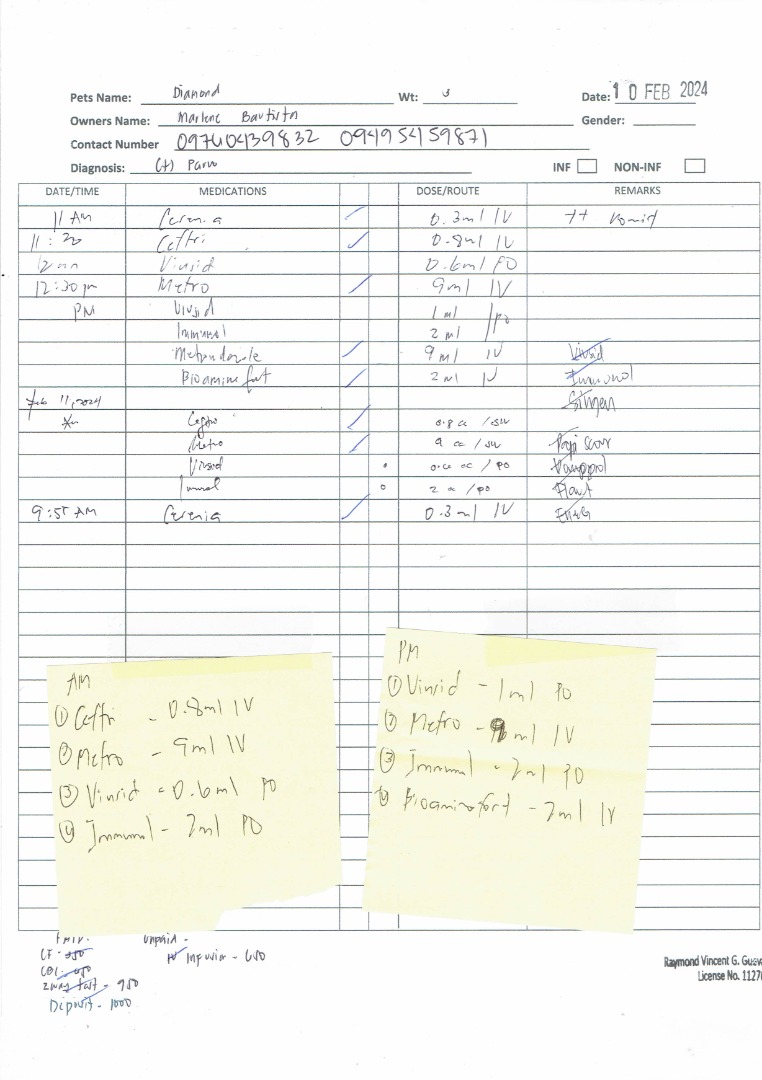 Pets Name: Diamond Wt: 3 Date: 10 FEB 2024
Owners Name: Marlene Bautista Gender:
Contact Number 09760439832 09495459871
Diagnosis: (+) Parvo INF NON-INF
DATE/TIME MEDICATIONS DOSE/ROUTE REMARKS
11 AM Cerenia 0.3ml IV ++ vomit
11:20 Ceftri 0.8ml IV
12nn Vinsid 0.6ml PO
12:30pm Metro 9ml IV
PM Vinsid 1ml /po
Immunol 2ml
Metronidazole 9ml IV Vinsid
Bioamine fort 2ml IV Immunol
Feb 11, 2024
Ceftri 0.8cc
Metro 9cc Papi scour
Vinsid /PO
Immunol 2cc /PO
9:55 AM Cerenia 0.3ml IV
AM
① Ceftri - 0.8ml IV
② Metro - 9ml IV
③ Vinsid - 0.6ml PO
④ Immunol - 2ml PO
PM
① Vinsid - 1ml PO
② Metro - 9ml IV
③ Immunol - 2ml PO
④ Bioaminofort - 2ml IV
Unpaid -
CF -
IV Infusion - 650
2way test - 950
Deposit - 1000
Raymond Vincent G.
License No. 1127